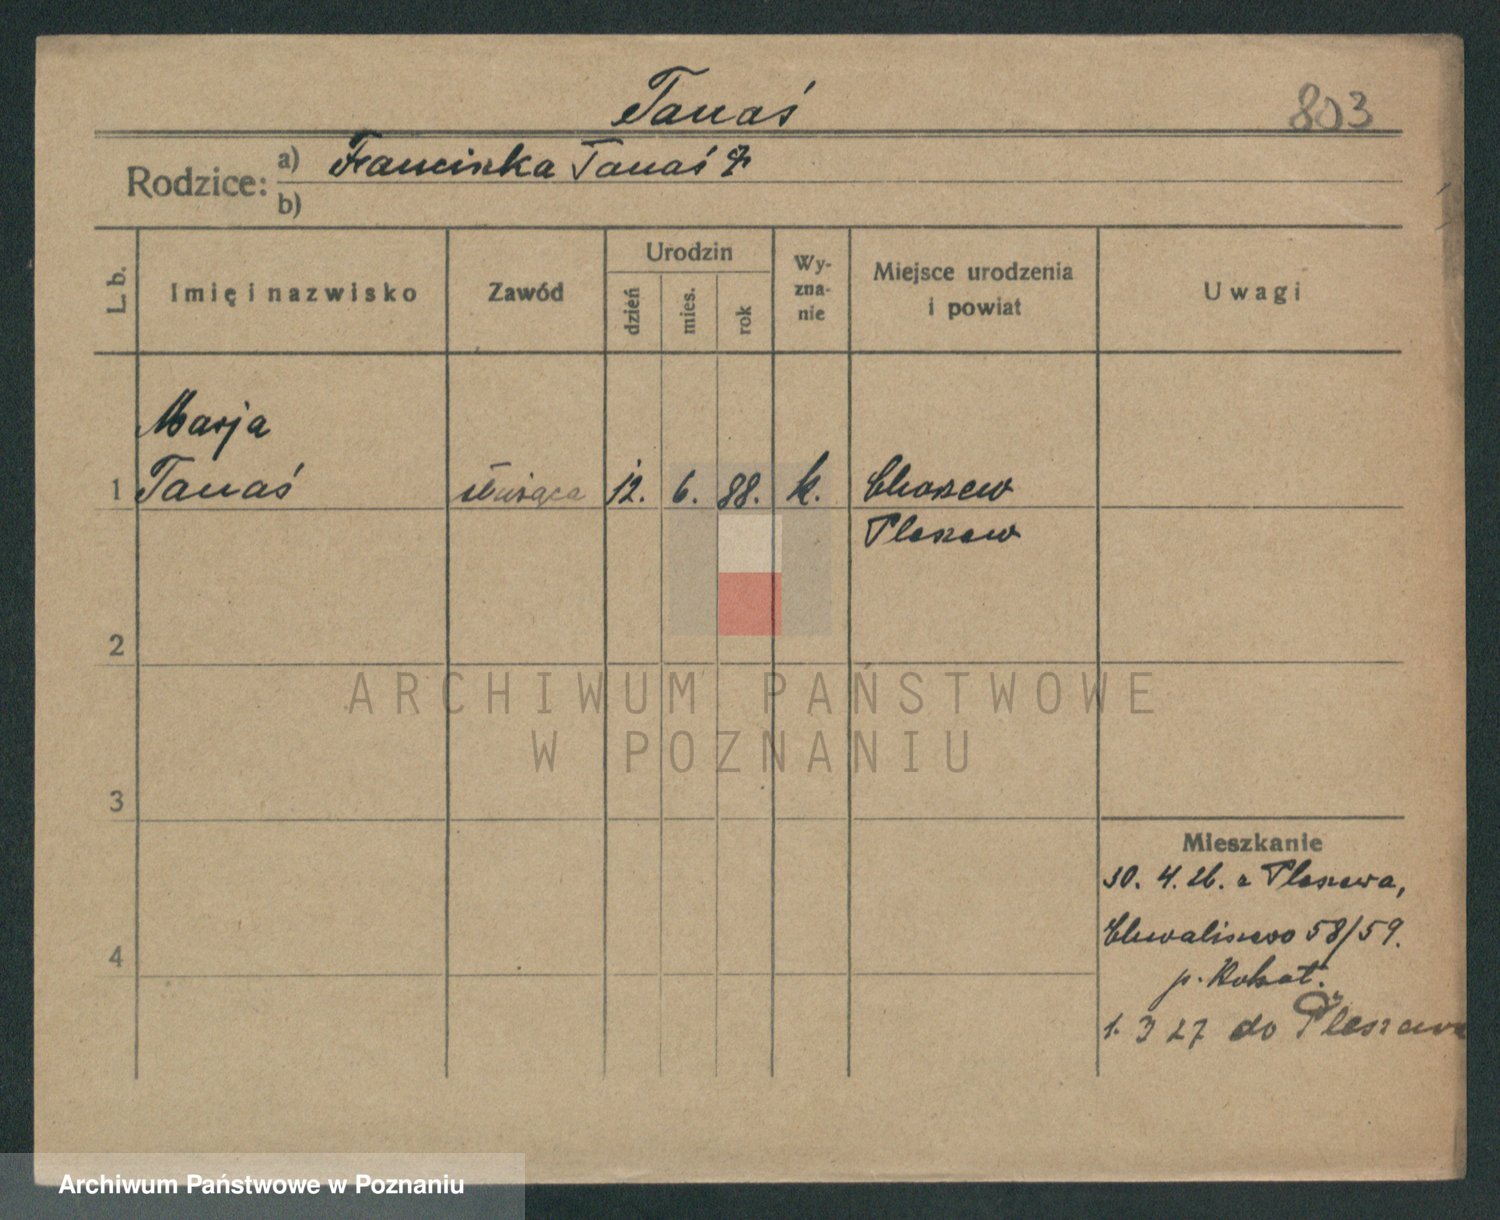 Tanaś
803
Rodzice:
a) Franciszka Tanaś
b)
L. b.
Imię i nazwisko
Zawód
Urodzin
dzień
mies.
rok
Wy-
zna-
nie
Miejsce urodzenia
i powiat
Uwagi
Marja
1 Tanaś służąca 12. 6. 88. k. Chorzew
Pleszew
2
3
4
Mieszkanie
30. 4. 26. z Pleszewa,
Chwaliszewo 58/59.
p.
1. 3 27 do Pleszewa
ARCHIWUM PAŃSTWOWE
W POZNANIU
Archiwum Państwowe w Poznaniu